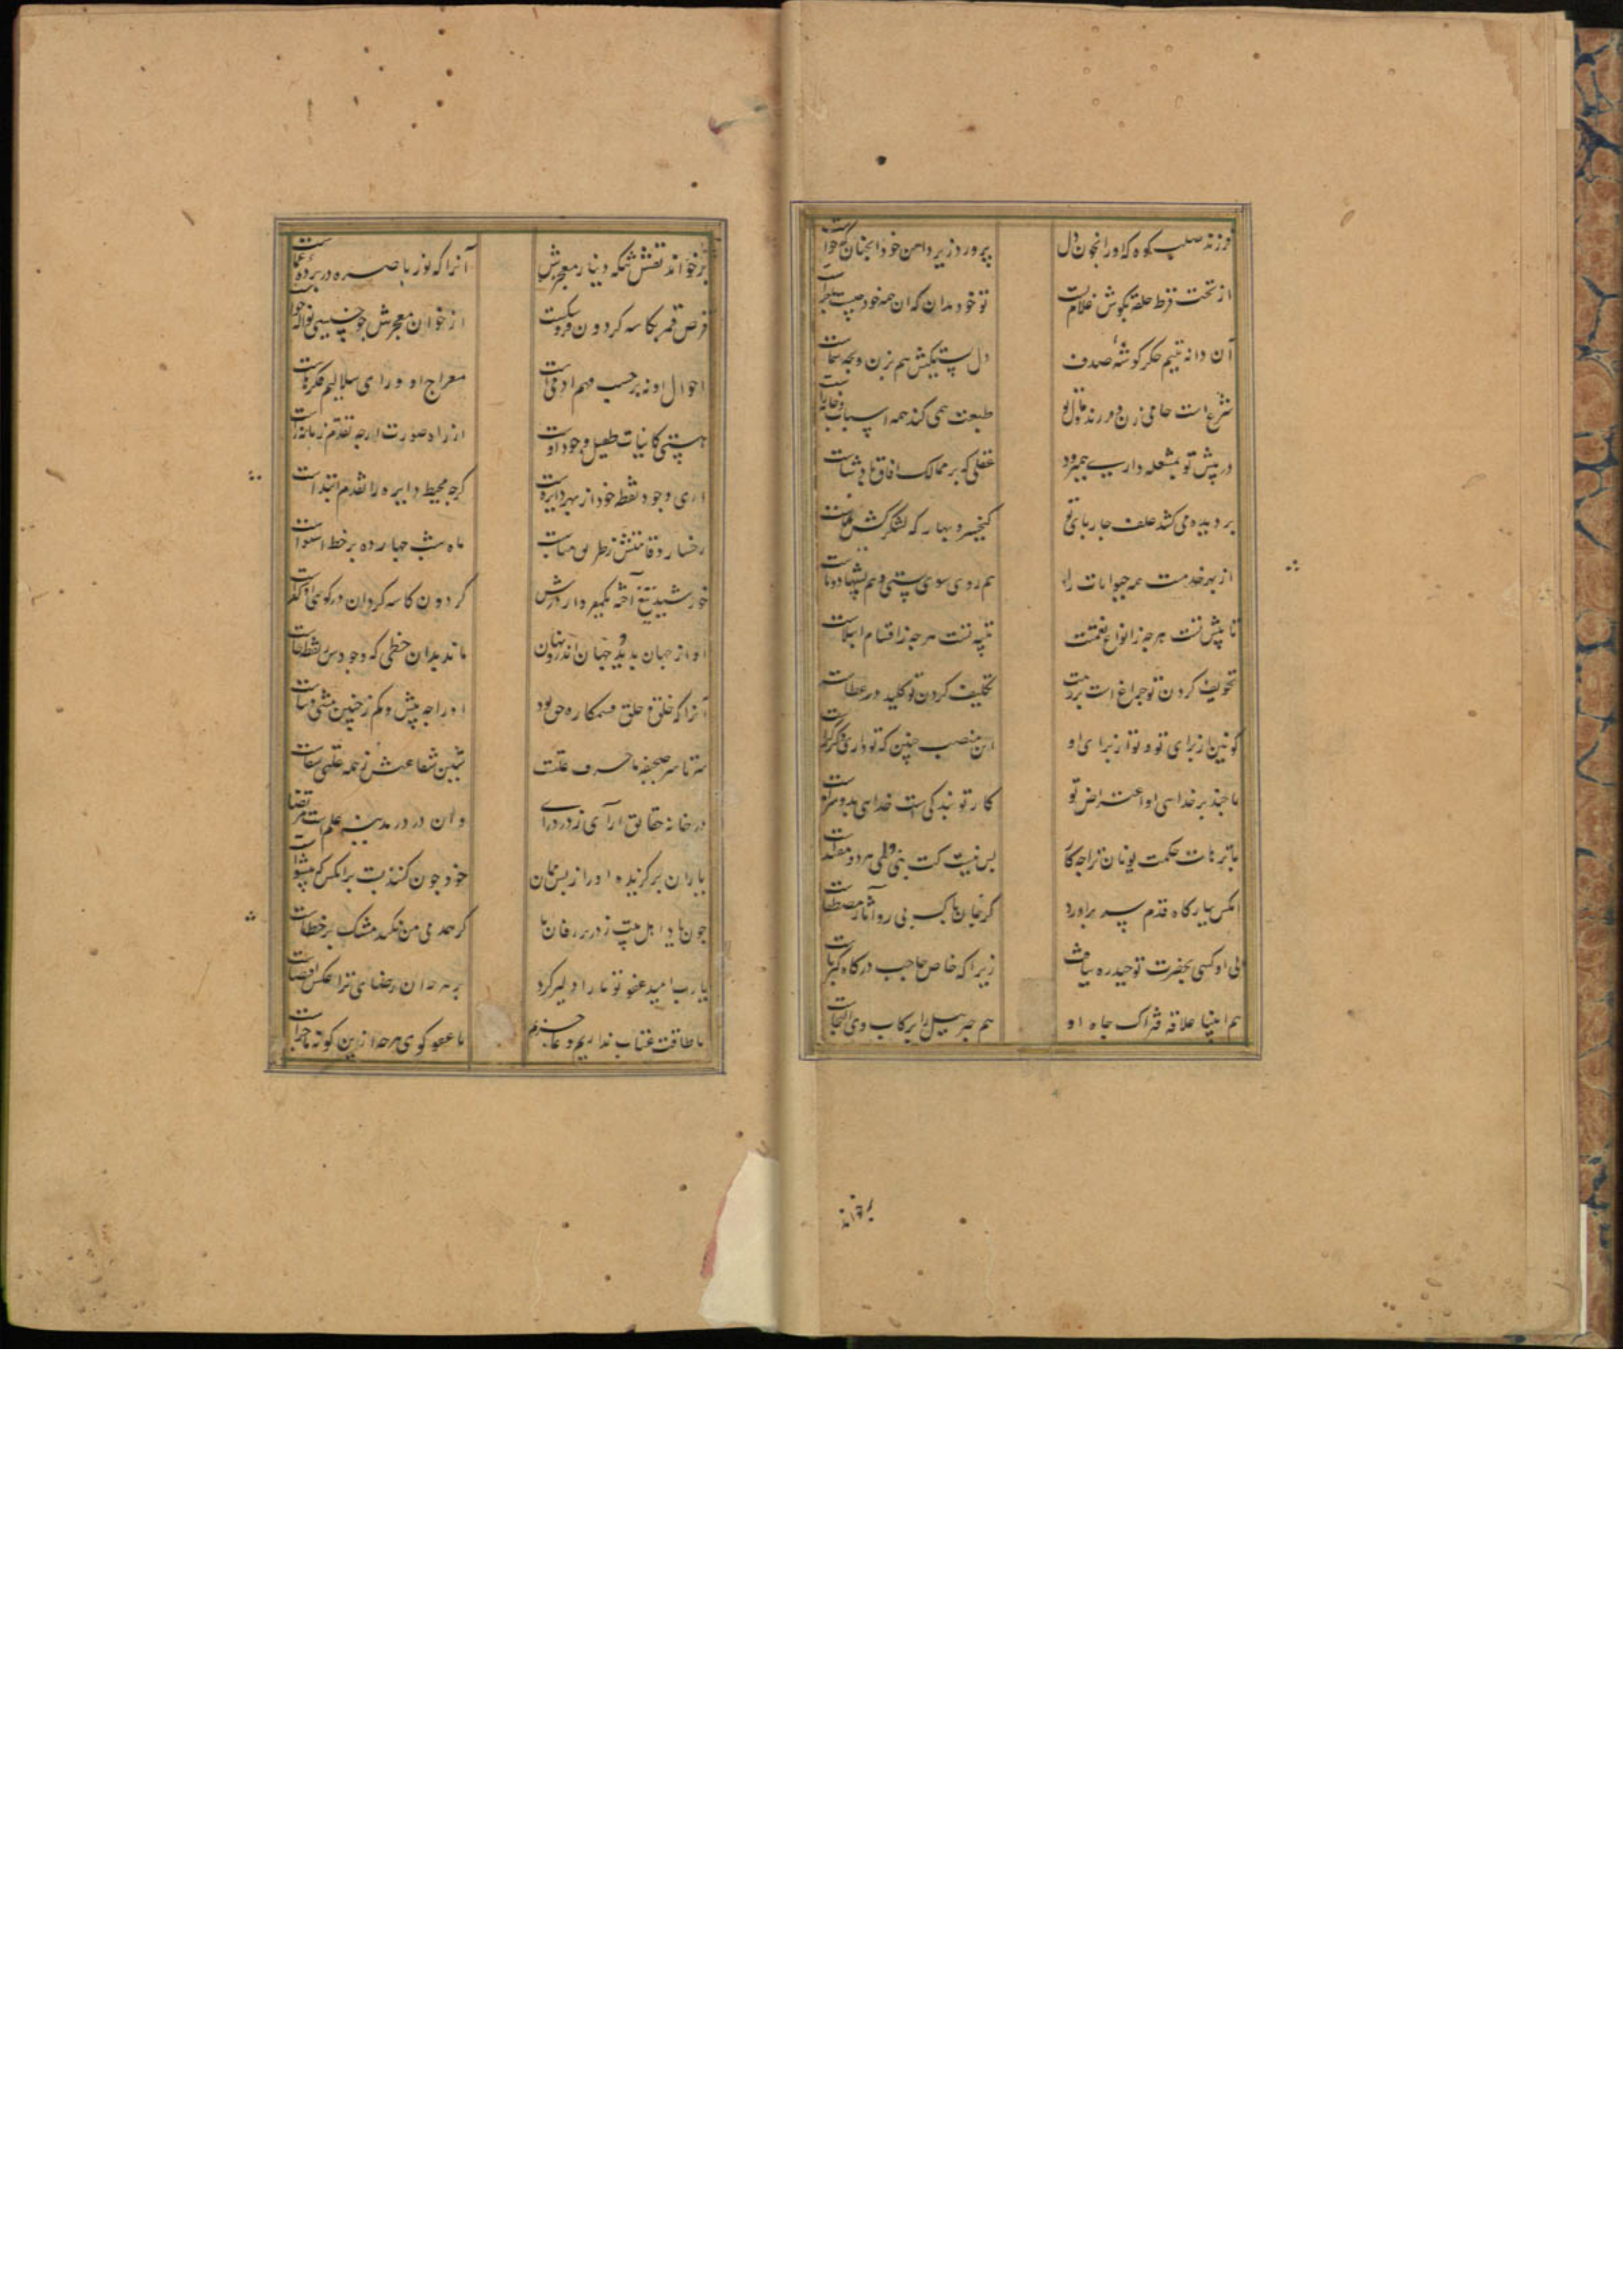 فرزند صلب کوه که او را بخون دل پرورد زیر دامن خود آنچنان که خواست
از تحت قرط حلقه بکوش غلام تست تو خود مدان که ان همه خود چیست
آن دانه یتیم جکر کوشه صدف دل بستیکیش هم بزن و بچه شماست
شرع است حامی زن و فرزند و مال تو طبعت همی کند همه اسباب خانه راست
در پیش تو بمشعله داری همیرود عقلی که بر ممالک افاق پادشاست
بر دیده می کشد علف جارپای تو کیخسرو بهار که لشکرکش
از بهر خدمت همه حیوانات را هم روی سوی پستی و هم پشتها دوتاست
تا پیش تست هرچه ز انواع نعمتست تنبیه تست هرجه ز اقسام ابتلاست
تخویف کردن تو جراغ است بر رهت تکلیف کردن تو کلید در عطاست
کونین از برای تو و تو از برای او این منصب جنین که تو داری دکر کراست
تا جند بر خدای او اعتراض تو کار تو بندکی است خدای بدو سزاست
با ترهات حکمت یونان ترا جه کار بس نیست کت نبی و ولی هر دو مقتداست
انکس ببارکاه قدم سر براورد کز جان پاک پی رو آثار مصطفاست
بی او کسی بحضرت توحید ره نیافت زیرا که خاص حاجب درکاه کبریاست
هم انبیا علاقه فتراک جاه او هم جبرییل را برکاب وی التجاست
برخواند
برخواند نقش سکه دینار معجزش آنرا که نور باصره در پرده عماست
قرص قمر بکاسه کردون فرو شکست از خوان معجزش جو خسیسی نواله خواست
احوال او نه بر حسب فهم ادمی است معراج او ورای سلالیم فکر ماست
هستی کاینات طفیل وجود اوست از راه صورت ارجه تقدم زمانه راست
اری وجود نقطه خود از بهر دایره است کرجه محیط دایره را تقدم ابتداست
رخسار و قامتش ز طریق مناسبت ماه شب جهارده بر خط استواست
خورشید تیغ آخته یکمیر دار درش کردون کاسه کردان در کوی او کداست
او از جهان بدید و جهان اندرو نهان ماند بدان خطی که وجودش نقطه خاست
آنرا که خلق و خلق قسمکاره حق بود او را جه بیش و کم ز جنین مثنی و ثناست
سر تا سر صحیفه ما حرف علتست شین شفاعتش ز همه علتی شفاست
در خانه حقایق ار آی ز در درای وان در در مدینه علم است مرتضاست
یاران برکزیده او را ز پس ممان خود جون کنند پشت بر انکس که پیشواست
جون هادی اهل بیت
یارب امید عفو تو ما را دلیر کرد
ما طاقت عتاب نداریم و عاجزیم با عفو کوی هرجه ازین کونه ماجراست